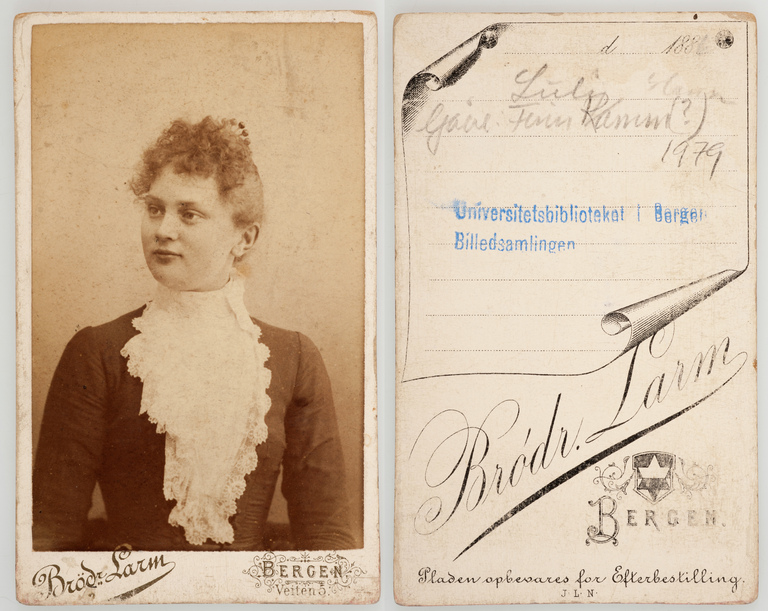 Brödr. Larm
BERGEN
Veiten 5.
d 188
Luli
Gave. Finn Ramm (?)
1979
Universitetsbiblioteket i Bergen
Billedsamlingen
Brödr. Larm
BERGEN.
Pladen opbevares for Efterbestilling.
J.L.N.